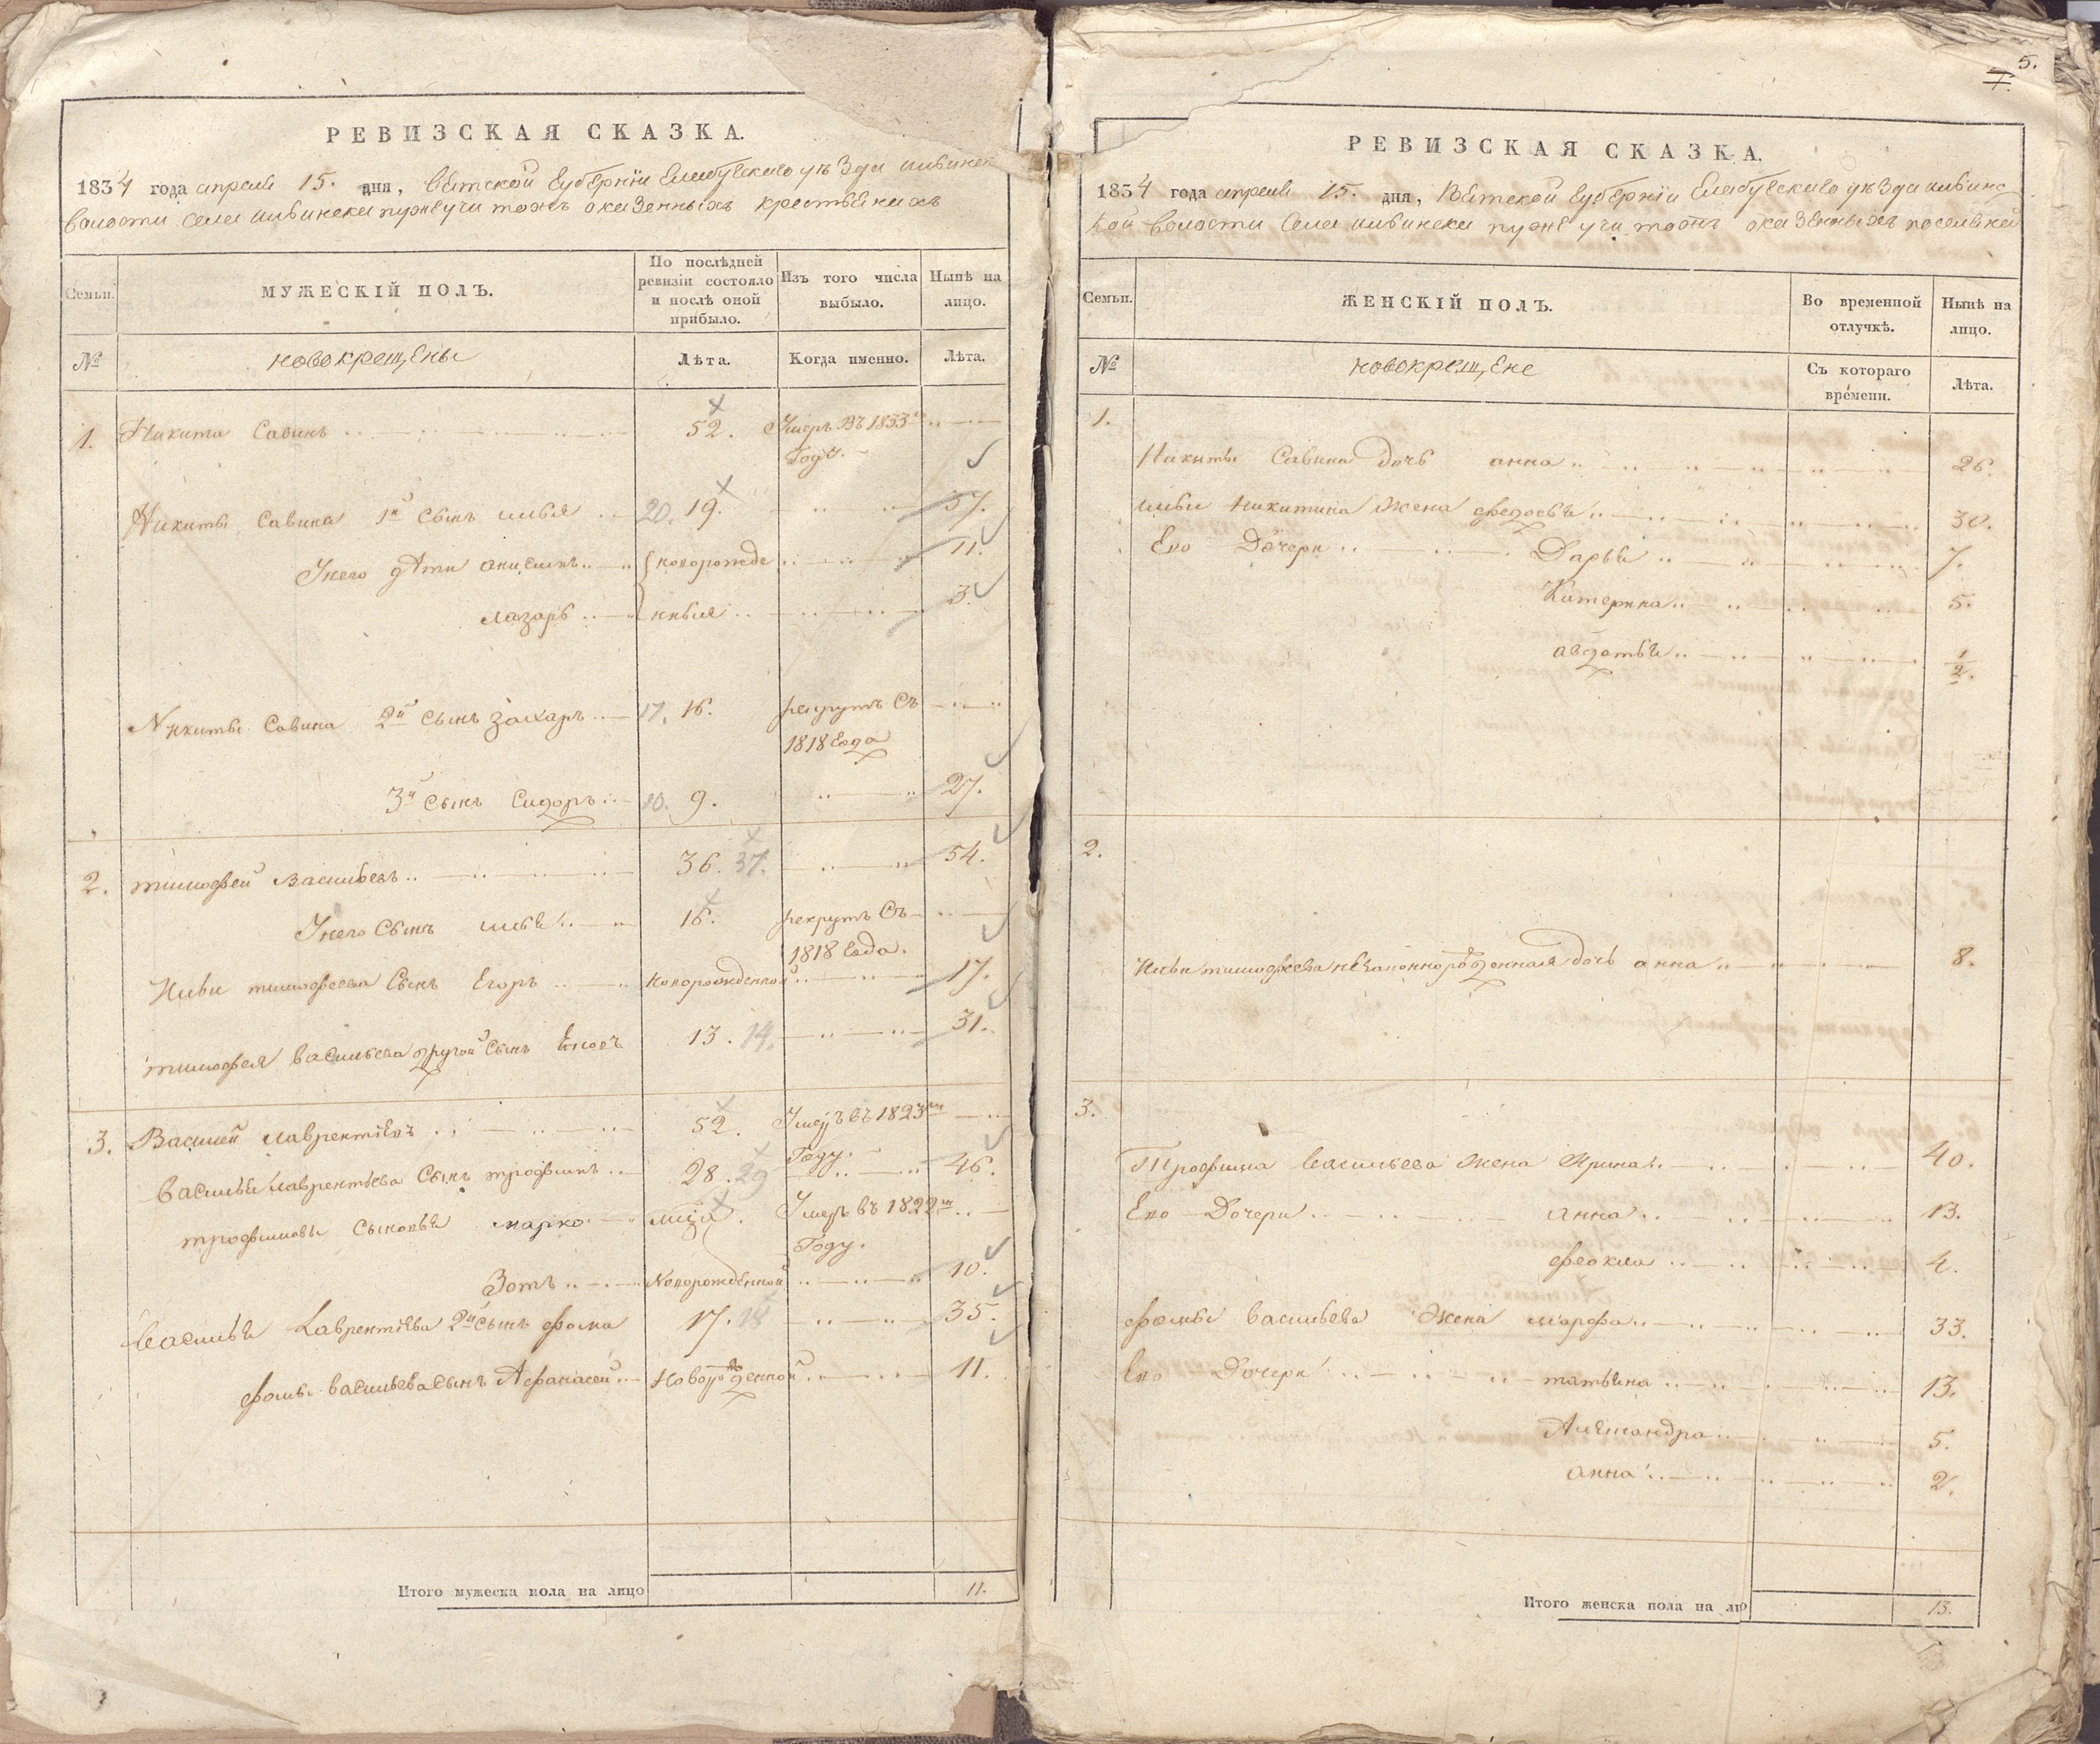 РЕВИЗСКАЯ СКАЗКА.
1834 года апреля 15. дня, Вятской Губернiи Елабугскаго уѣзда ильинск
волости села ильинска пужеучи тожъ оказенныхъ крестьянахъ
Семьи.
МУЖЕСКIЙ ПОЛЪ.
По послѣдней ревизiи состояло и послѣ оной прибыло.
Изъ того числа выбыло.
Нынѣ на лицо.
№
новокрещены
Лѣта.
Когда именно.
Лѣта.
1. Никита Савинъ 52. Умеръ въ 1833м
Году.
Никиты Савина 1й сынъ илья 20. 19. 37.
Унего дѣти 11.
{новорожде
лазарь нныя 3.
Никиты Савина 2й сынъ захаръ 17. 16. рекрутъ съ
1818 Года
3й сынъ Сидоръ 10. 9. 27.
2. тимофей Васильевъ 36. 37. 54.
Унего Сынъ илья 16. рекрутъ Съ
1818 Года.
Ильи тимофеева Сынъ Егоръ новорожденной 17.
тимофея васильева другой Сынъ 13. 14. 31.
3. Василей лаврентьевъ 52. Умеръ въ 1823м
Году.
Васильи лаврентьева Сынъ трофимъ 28. 29 46.
трофимовы Сыновья марко Умеръ въ 1822м
Году.
Зотъ Новорожденной 10.
Васильи Лаврентьева 2й сынъ фома 17. 18 35.
фомы васильева сынъ Афанасей новорожденной 11.
Итого мужеска пола на лицо 11.
5.
7.
РЕВИЗСКАЯ СКАЗКА.
1834 года апреля 15. дня, Вятской Губернiи Елабугскаго уѣзда ильинс
кой волости Села ильинска пужеучи тожъ оказенныхъ поселянъ
Семьи.
ЖЕНСКIЙ ПОЛЪ.
Во временной отлучкѣ.
Нынѣ на лицо.
№
новокрещене
Съ котораго времени.
Лѣта.
1.
Никиты Савина дочь анна 26.
ильи никитина жена федосья 30.
Ево Дочери Дарья 7.
Катерина 5.
авдотья 1/2.
2.
Ильи тимофеева незаконнорожденная дочь анна 8.
3.
Трофима васильева жена Ирина 40.
Ево Дочери анна 13.
фекла 4.
фомы васильева жена марфа 33.
Ево Дочери татьяна 13.
Александра 5.
анна 2.
Итого женска пола на ли 13.